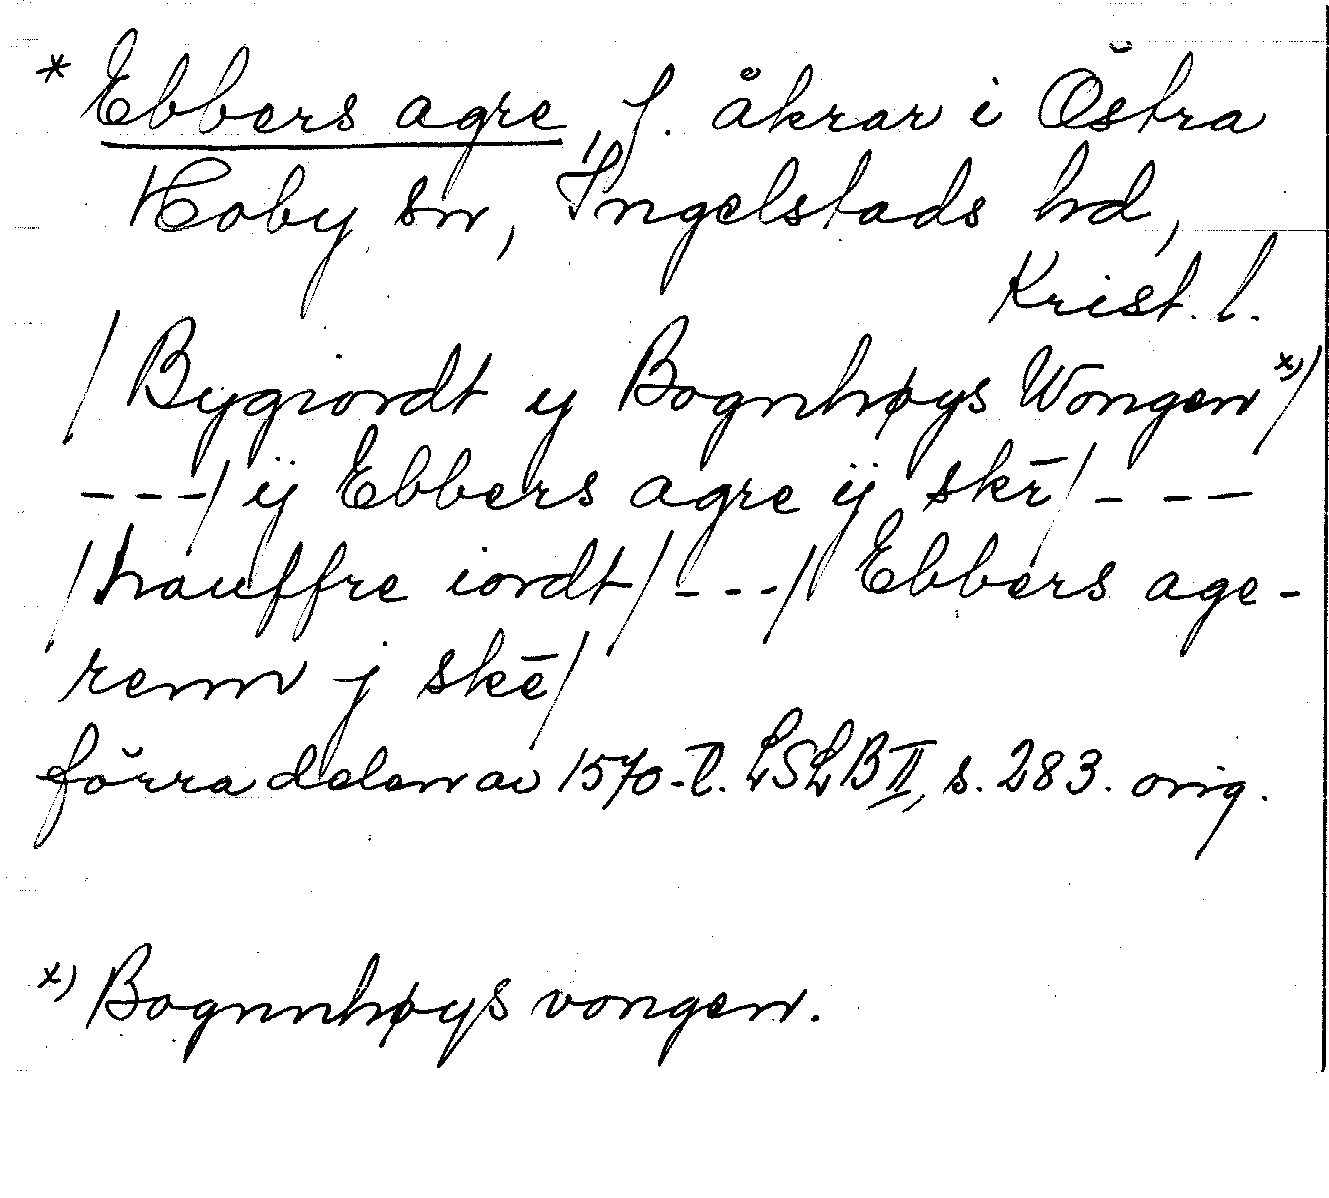 * Ebbers agre, f. åkrar i Östra
Hoby sn, Ingelstads hd,
Krist. l.
/Bygiordt y Bognhøys Wongen x)/
---/ ij Ebbers agre ij skē/ ---
/hauffre iordt/ ---/ Ebbers age-
renn j skē/
förra delen av 1570-t. LSLB II, s. 283. orig.
x) Bognnhøys vongen.